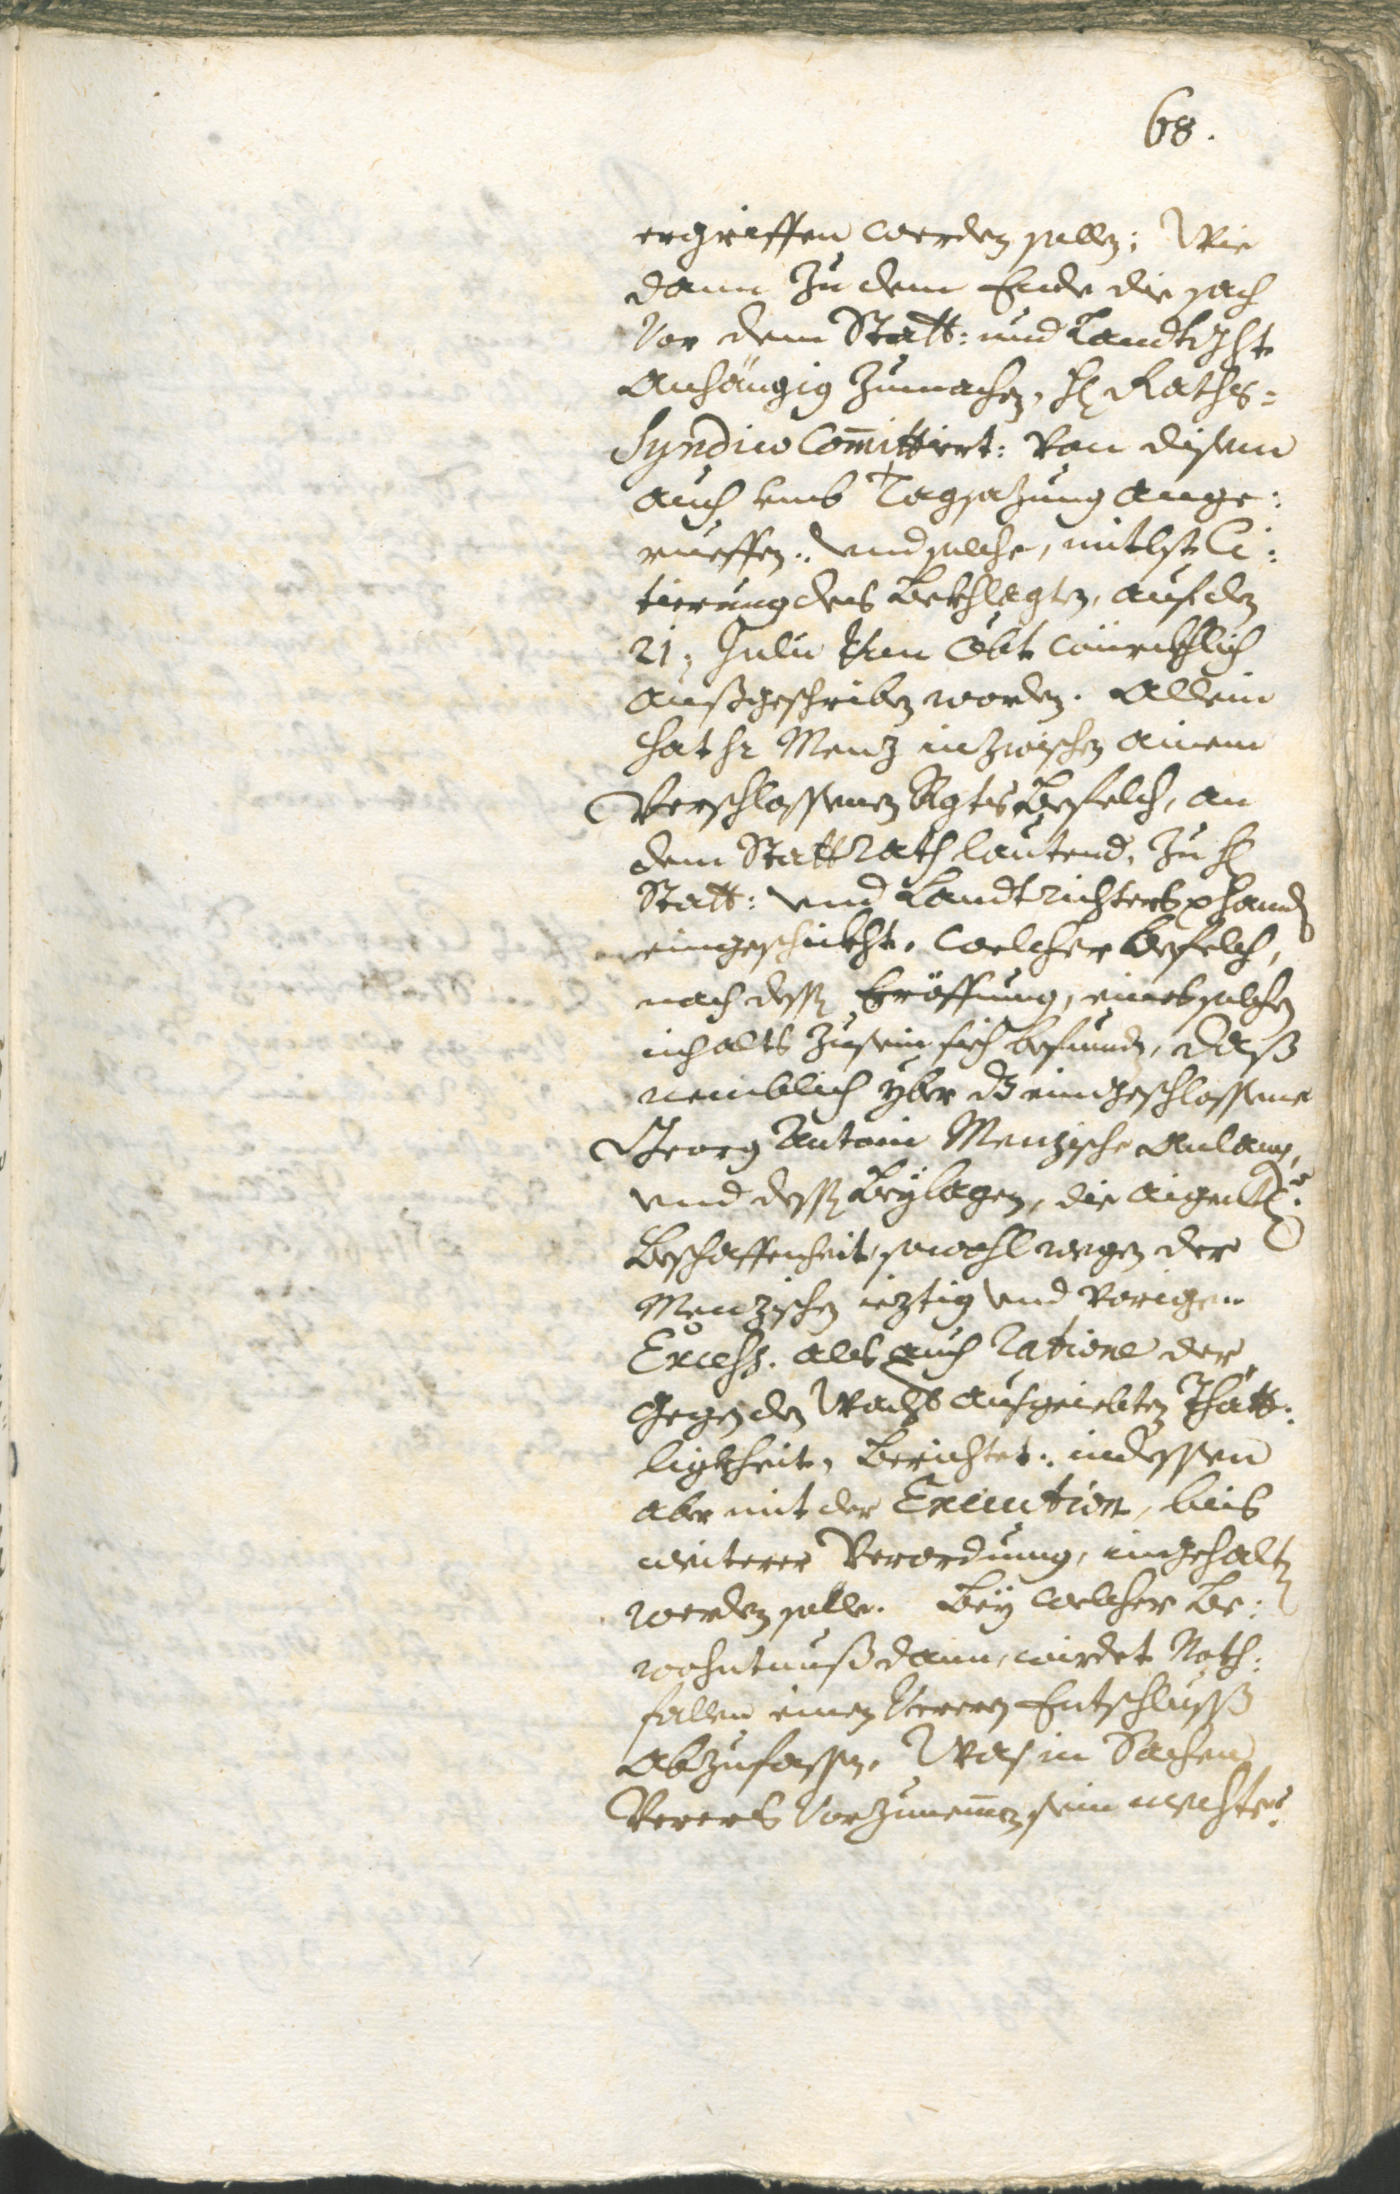 68.
ergriffen werden sollen; Wie
dann zu dem Ende die sach
Vor dem Statt: und Landtght
Anhängig zumachen, H Raths=
Syndico Com̄ittiert: Von disem
auch umb Tagsazung ange:
rueffen: und solche, mitlst Ci:
tierung des Bekhlagten, auf den
21. Julii würckhlich
außgeschriben worden. Allein
hat Hr Menz inzwischen ainem
Verschlossenen Rgts Befelch, an
dem Stattrath lautend, zu H
Statt: und Landtrichters handen
eingeschickht, welcher Befelch,
nach dessen Eröffnung, eines solchen
inhalts zusein sich befunden, daß
nemblich yber dz eingeschlossene
Georg Antoni Menzische Anlangen,
und dessen Beylagen, die aigentliche
Beschaffenheit, sowohl wegen der
Menzischen ieztig und vorigen
Excess. als auch Ratione der
gegen den Wachs ausgeiebten Thätt:
ligkheit, Berichtet: indessen
aber mit der Execution, biß
weiterer Verordnung, ingehalten
werden solle. Bey welcher Be:
wohntnuß dann, wirdet Noth:
fallen einen Vereren Entschluss
abzufassen, Was in Sachen
Verers Vorzunem̄en sein mechte?